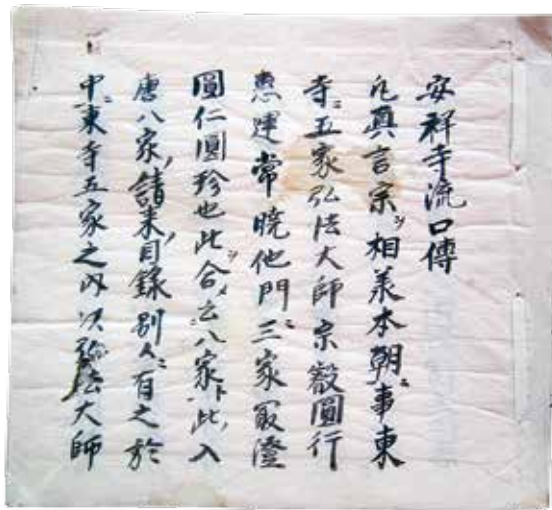 安祥寺流口傳
凡真言宗ヲ相承本朝ニ事東
寺ニ五家弘法大師宗叡圓行
惠運常曉他門ニ三家最澄
圓仁圓珍也此ヲ合メ云八家ト此ノ入
唐八家ノ請来目録ノ別々ニ有之於
中ニ東寺五家之内以弘法大師